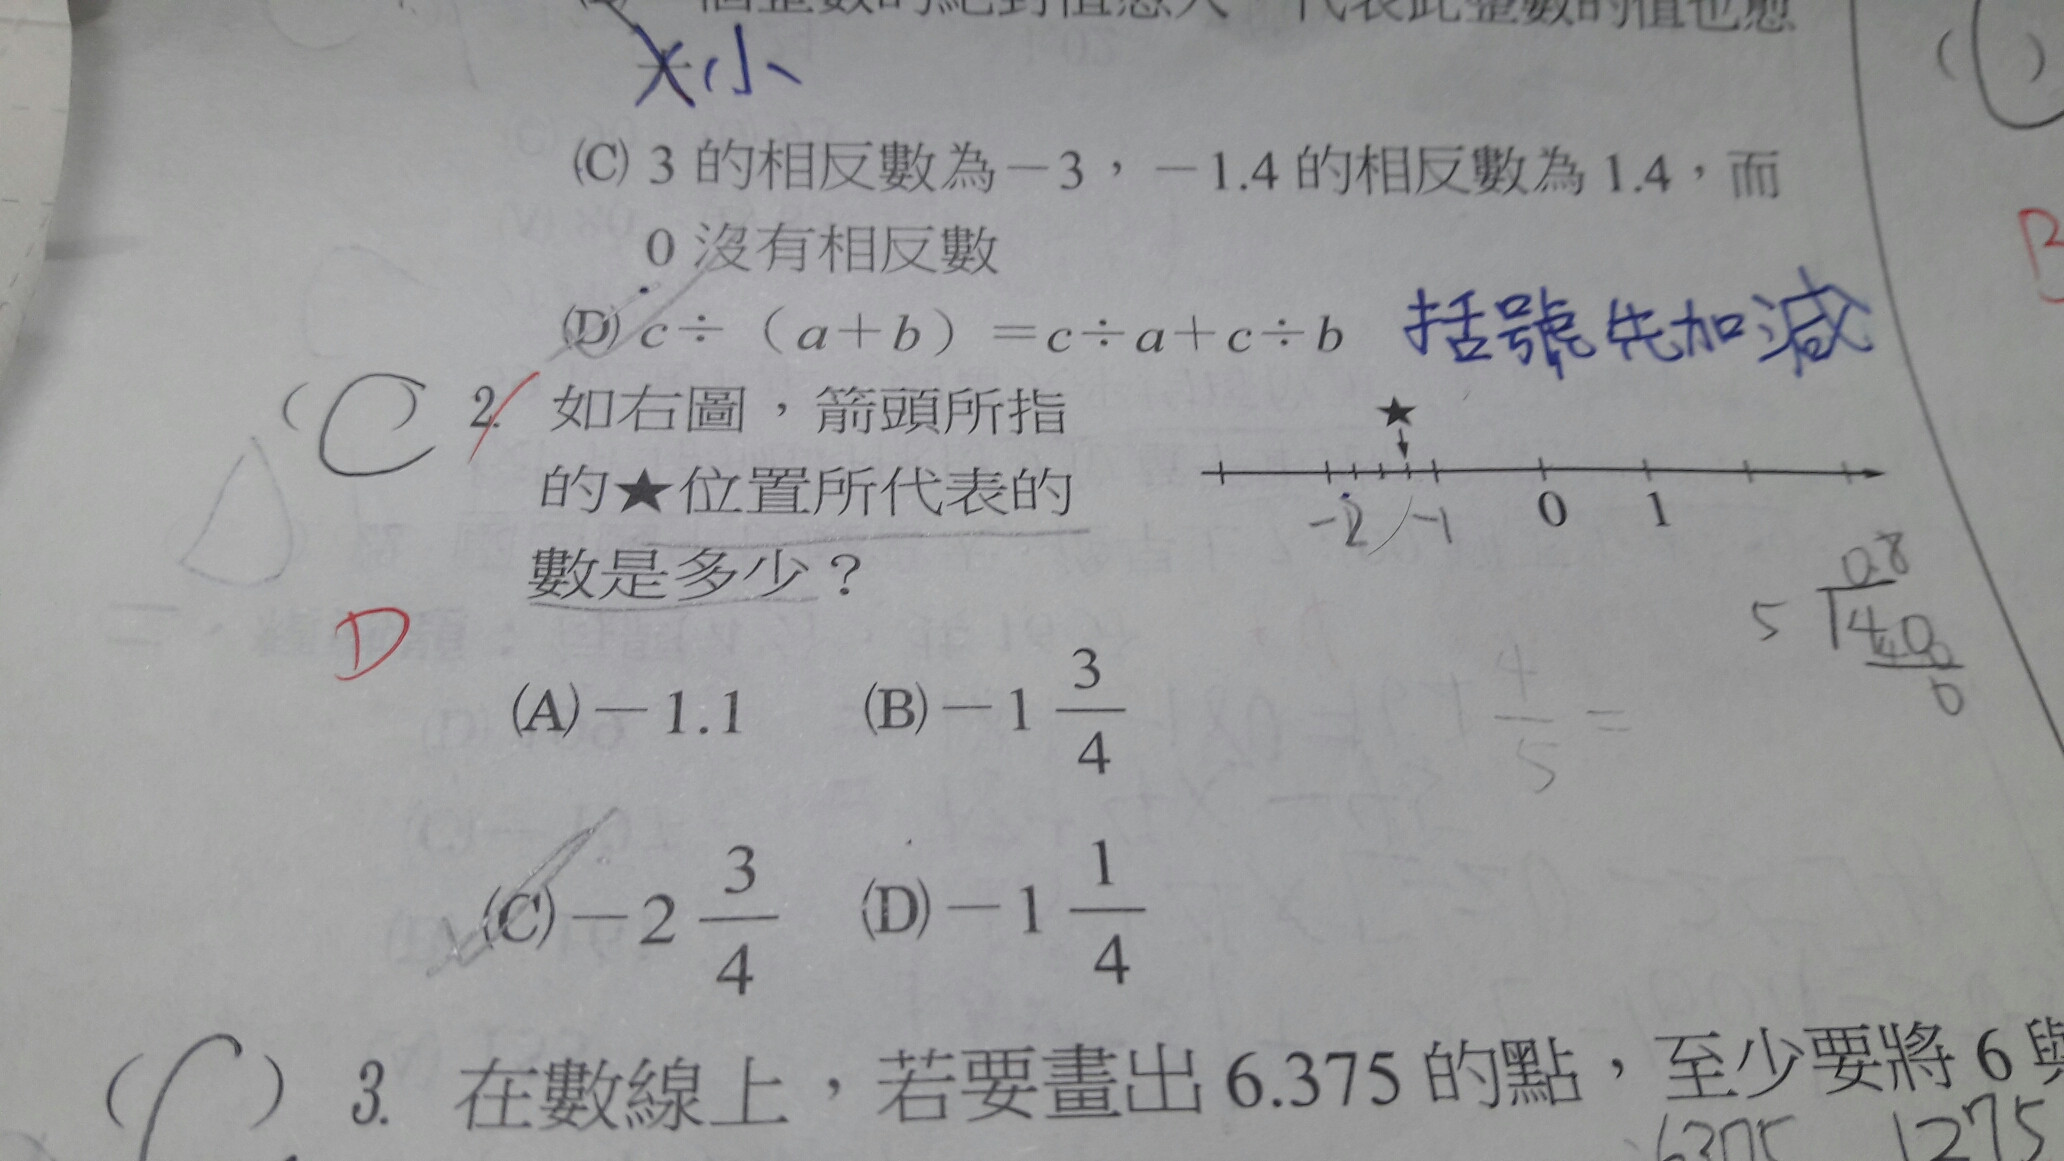 一個整數的絕對值愈大，代表此整數的值也愈
大小
(C) 3 的相反數為－3，－1.4 的相反數為 1.4，而
0 沒有相反數
(D) c÷（a＋b）＝c÷a＋c÷b 括號先加減
(C) 2. 如右圖，箭頭所指
的★位置所代表的
數是多少？
★
-2 -1 0 1
D
(A)－1.1 (B)－1 3/4
(C)－2 3/4 (D)－1 1/4
4/5 =
0.8
5 40
40
0
( ) 3. 在數線上，若要畫出 6.375 的點，至少要將 6 與
6375 1275
B